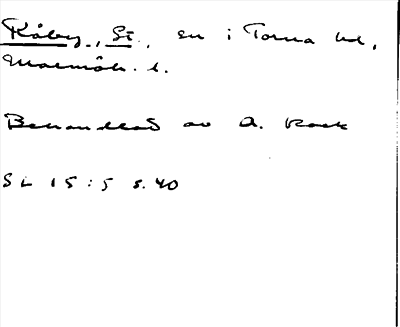 Råby, St., sn i Torna hd,
Malmöh. l.
Behandlat av A. Rock
SL 15:5 s. 40